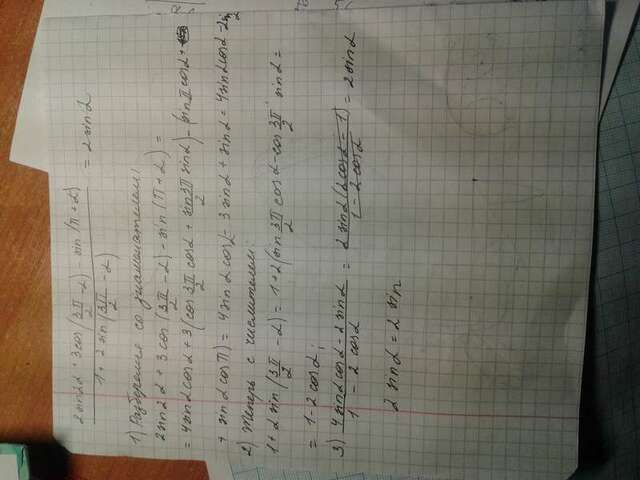 2sin2α + 3cos(3π/2 - α) - sin(π + α) / 1 + 2 sin(3π/2 - α) = 2 sinα
1) Разберемся со знаменателем:
2sin2α + 3cos(3π/2 - α) - sin(π + α) =
= 4sinα cosα + 3(cos 3π/2 cosα + sin 3π/2 sinα) - (sinπ cosα +
+ sinα cosπ) = 4sinα cosα - 3sinα + sinα = 4sinα cosα - 2sinα
2) Теперь с числителем:
1 + 2 sin(3π/2 - α) = 1 + 2(sin 3π/2 cosα - cos 3π/2 sinα =
= 1 - 2 cosα;
3) 4sinα cosα - 2 sinα / 1 - 2 cosα = 2 sinα (2cosα - 1) / 1 - 2 cosα = 2 sinα
2 sinα = 2 sin